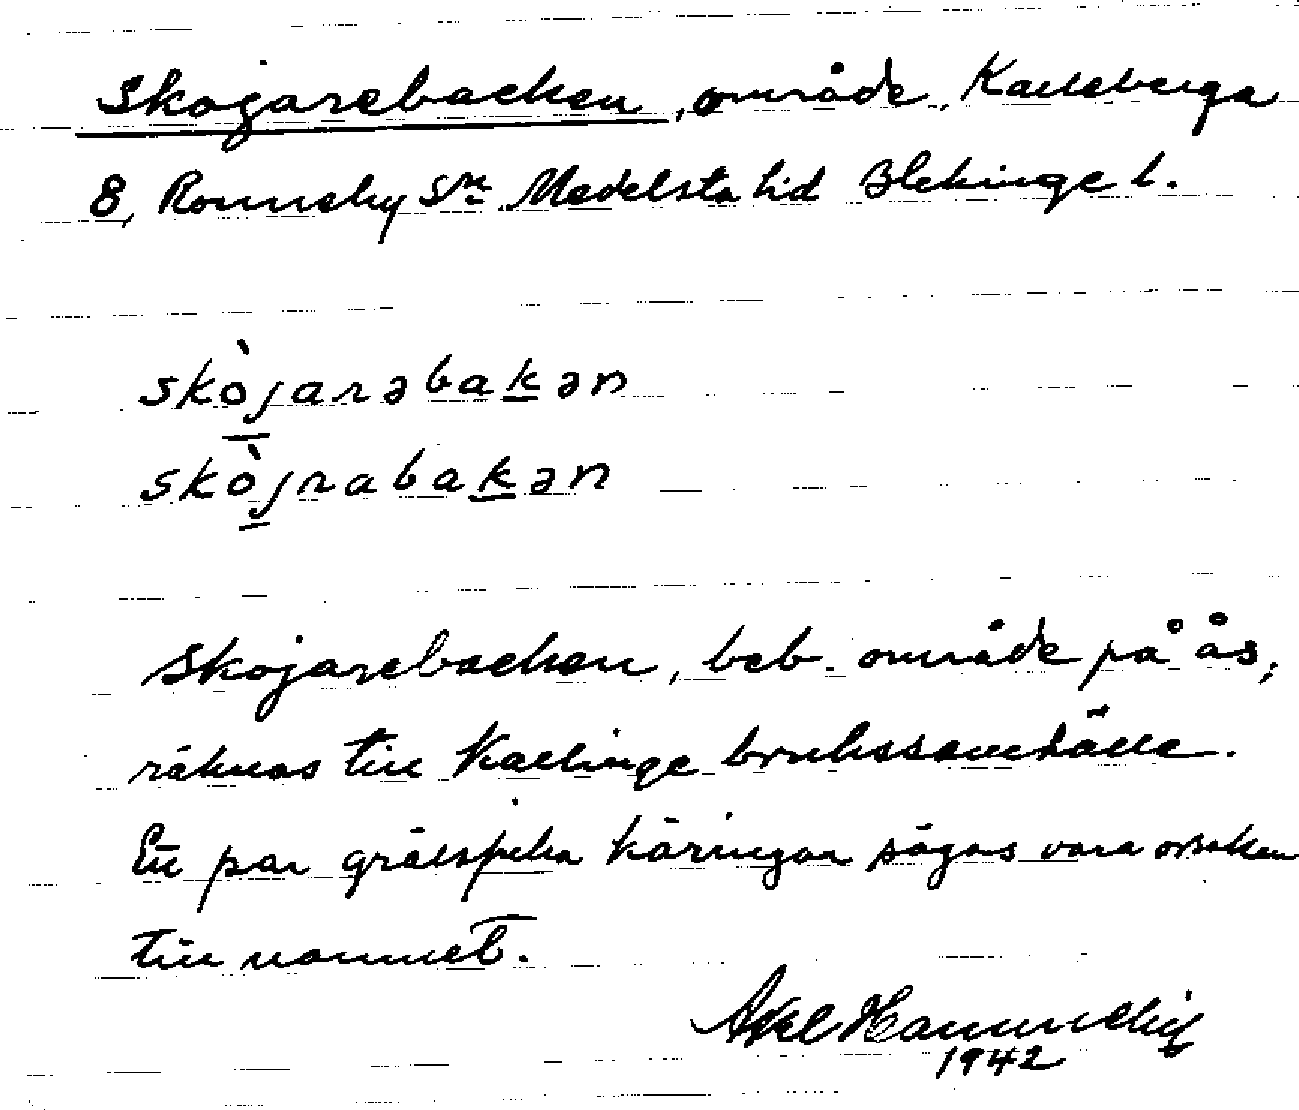 Skojarebacken, område, Karleberga
8, Ronneby Sn Medelsta hd Blekinge l.
skòjarəbakən
skòjrabakən
Skojarebacken, beb. område på ås,
räknas till Kallinge brukssamhälle.
Ett par grälsjuka käringar sägas vara orsaken
till namnet.
Axel
1942